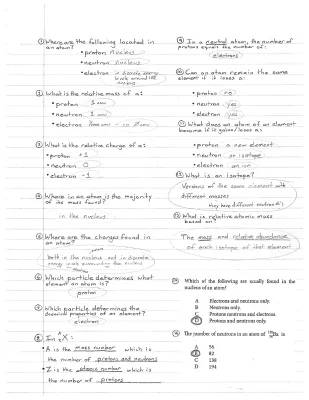 ① Where are the following located in
an atom?
• proton nucleus
• neutron nucleus
• electron in discrete energy
levels around the
nucleus
② What is the relative mass of a:
• proton 1 amu
• neutron 1 amu
• electron
③ What is the relative charge of a:
• proton +1
• neutron 0
• electron -1
④ Where in an atom is the majority
of the mass found?
in the nucleus
⑤ Where are the charges found in
an atom?
both in the nucleus and in discrete
energy levels surrounding the nucleus
⑥ Which particle determines what
element an atom is?
proton
⑦ Which particle determines the
chemical properties of an element?
electron
⑧ In A Z X:
• A is the mass number which is
the number of protons and neutrons
• Z is the atomic number which is
the number of protons
⑨ In a neutral atom, the number of
protons equals the number of:
electrons
⑩ Can an atom remain the same
element if it loses a:
• proton no
• neutron yes
• electron yes
⑪ What does an atom of an element
become if it gains/loses a:
• proton a new element
• neutron an isotope
• electron an ion
⑫ What is an isotope?
Versions of the same element with
different masses
(they have different neutron #'s)
⑬ What is relative atomic mass
based on?
The mass and relative abundance
of each isotope of that element
Which of the following are usually found in the
nucleus of an atom?
A Electrons and neutrons only.
B Neutrons only.
C Protons neutrons and electrons.
D Protons and neutrons only.
The number of neutrons in an atom of 138Ba is
A 56
B 82
C 138
D 194